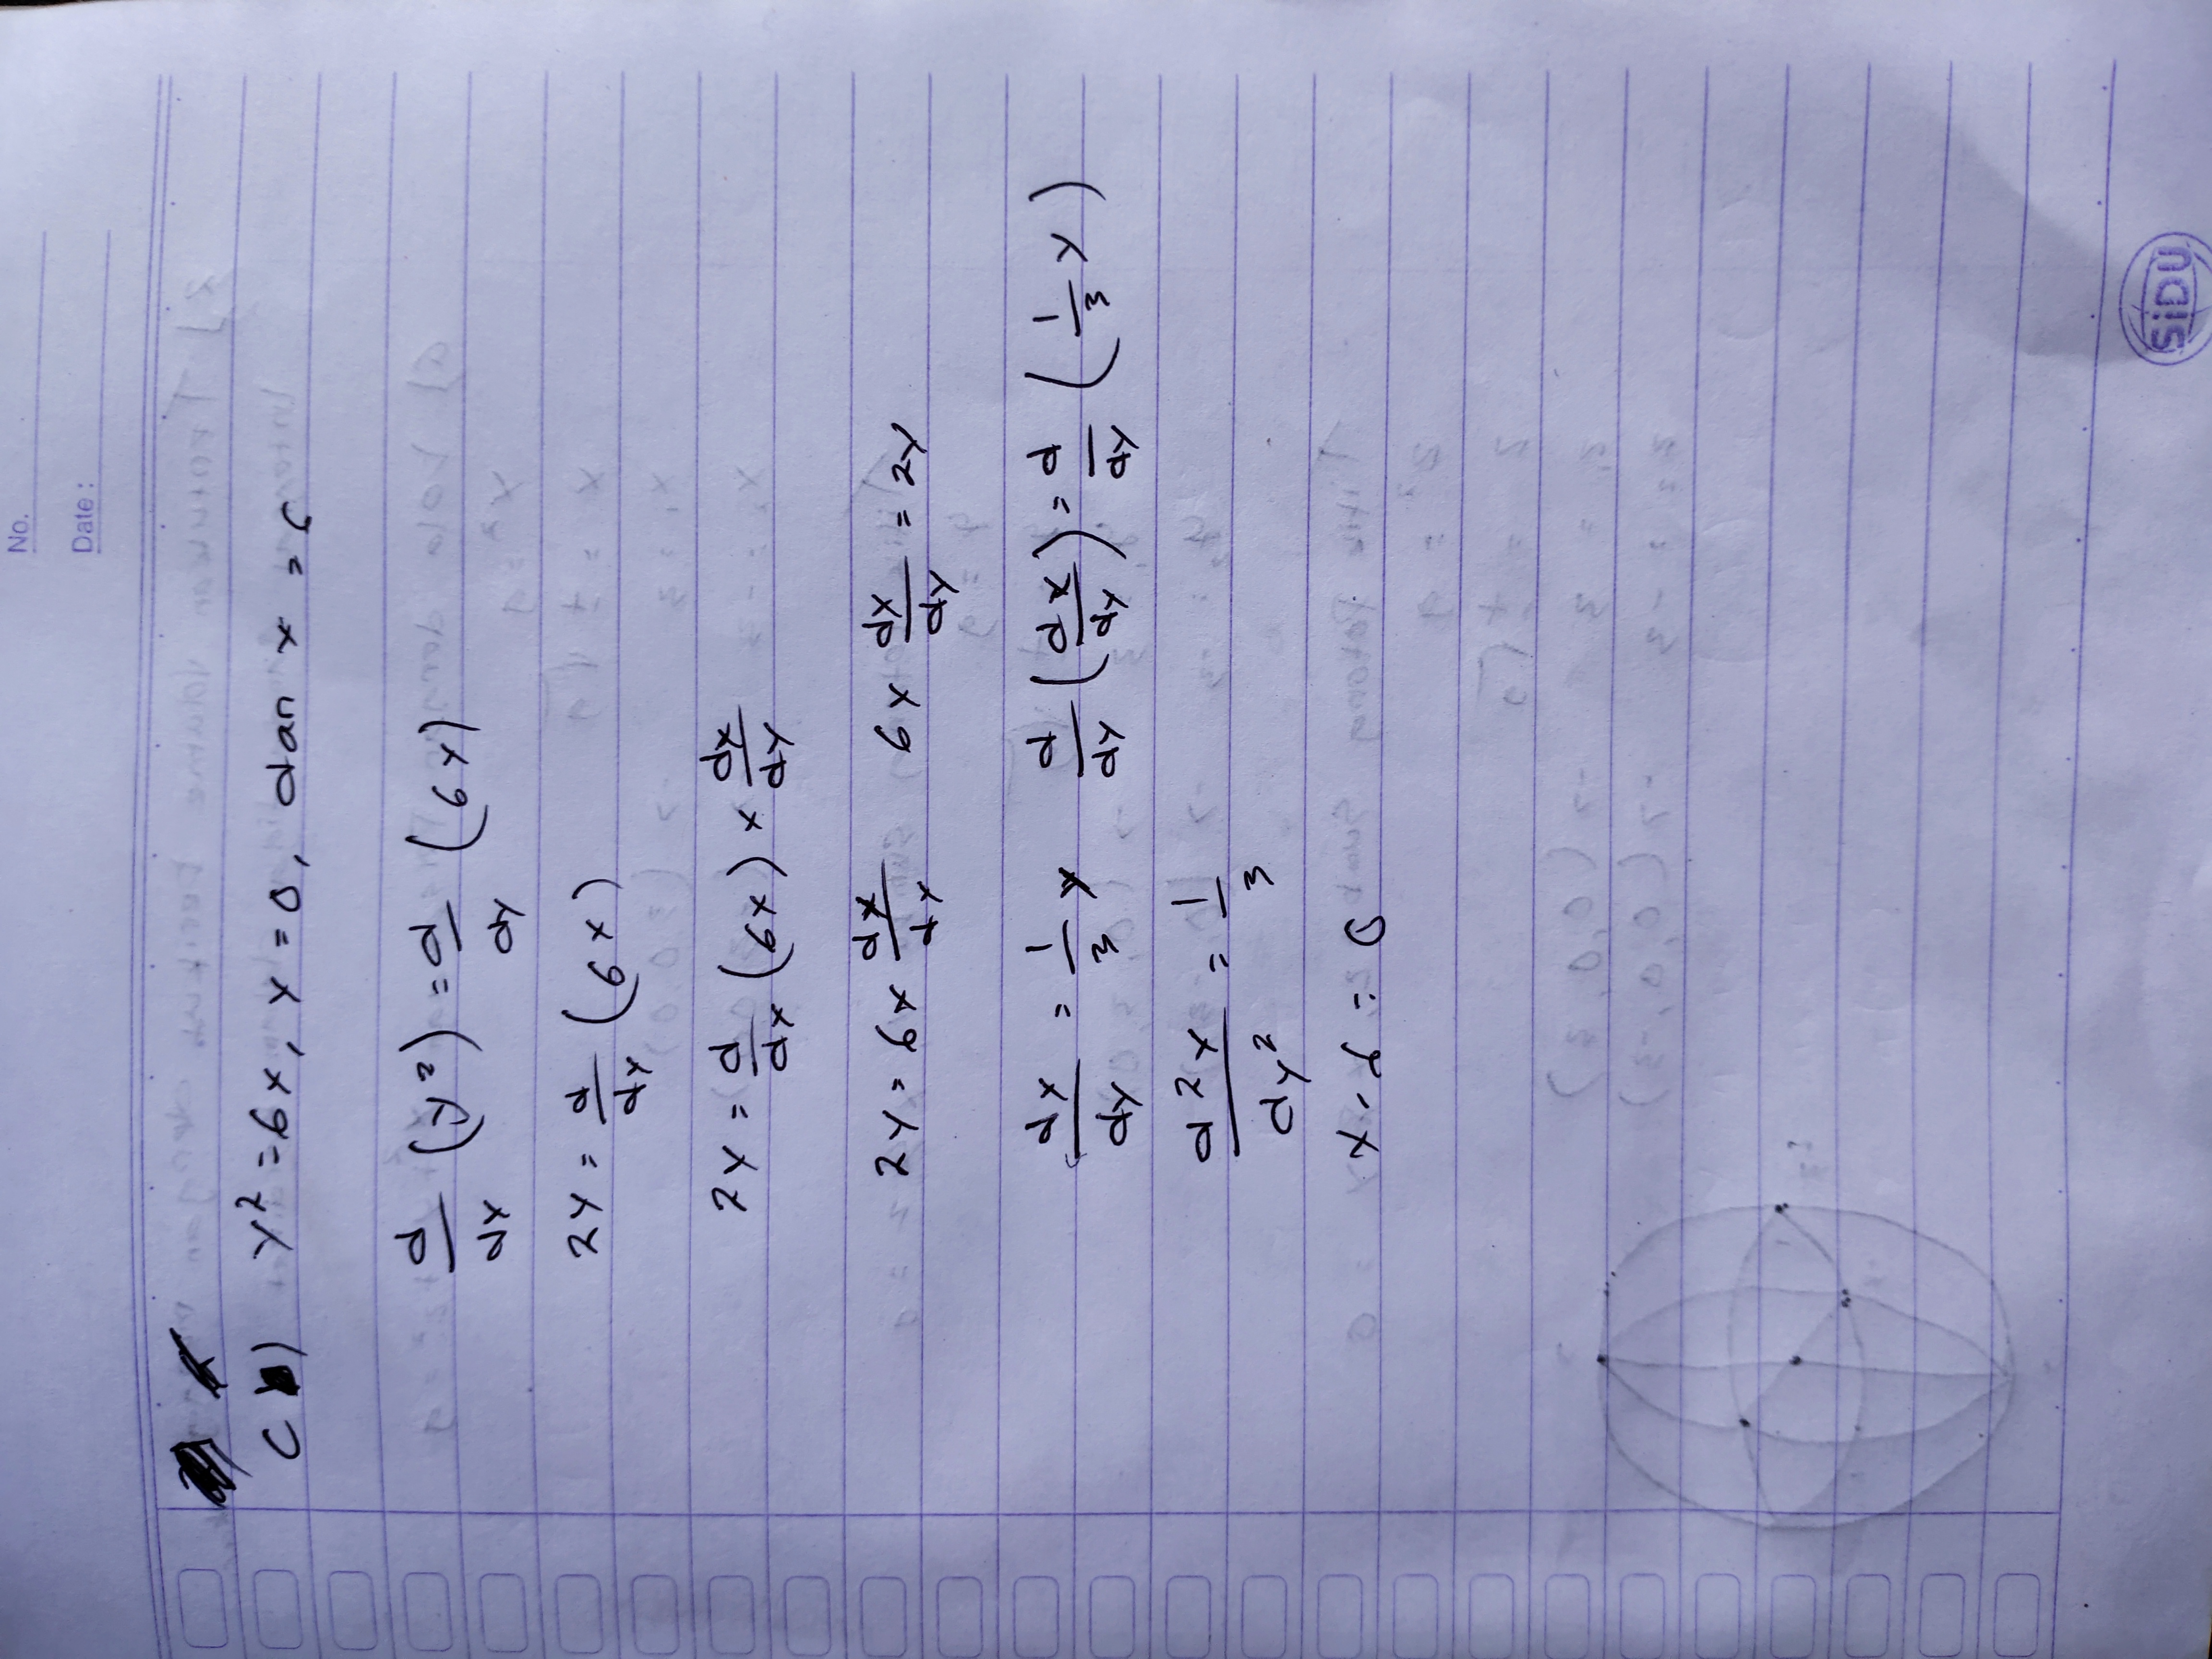 No.
Date :
c b) y² = 6x, y = 0, dan x = 6
d/dx (y²) = d/dy (6x)
2y = d/dy (6x)
2y = d/dx (6x) × dx/dy
2y = 6x dx/dx 6x dx/dy = 2y
dx/dy = 1/3 y d/dy (dx/dy) = d/dy (1/3 y)
d²x/dy² = 1/3
x - 6 = 0
SiDU